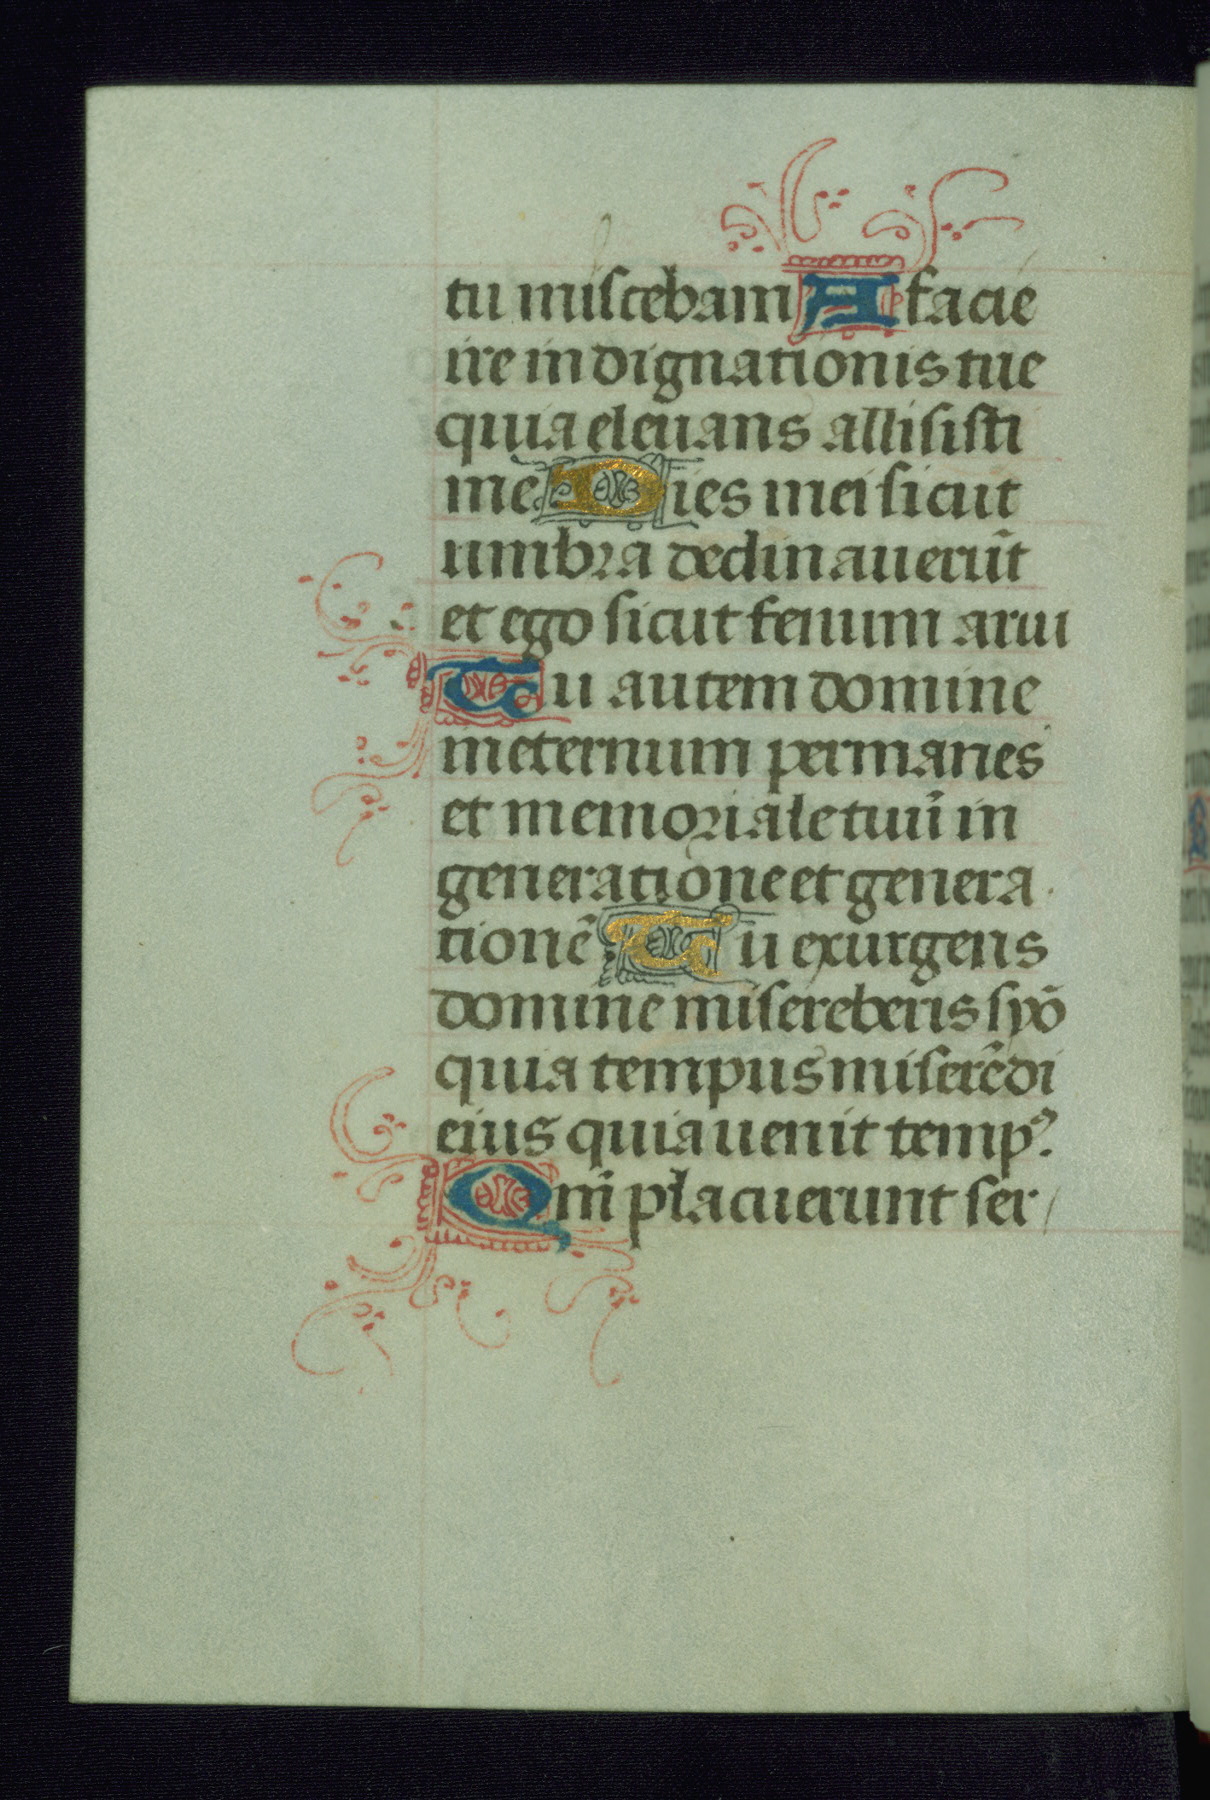 tu miscebam A facie
ire indignationis tue
quia eleuans allisisti
me Dies mei sicut
umbra declinauerūt
et ego sicut fenum arui
Tu autem domine
in eternum permanes
et memoriale tuū in
generatione et genera
tionē Tu exurgens
domine misereberis syō
quia tempus miserēdi
eius quia uenit tempꝰ.
Qm̄ placuerunt ser